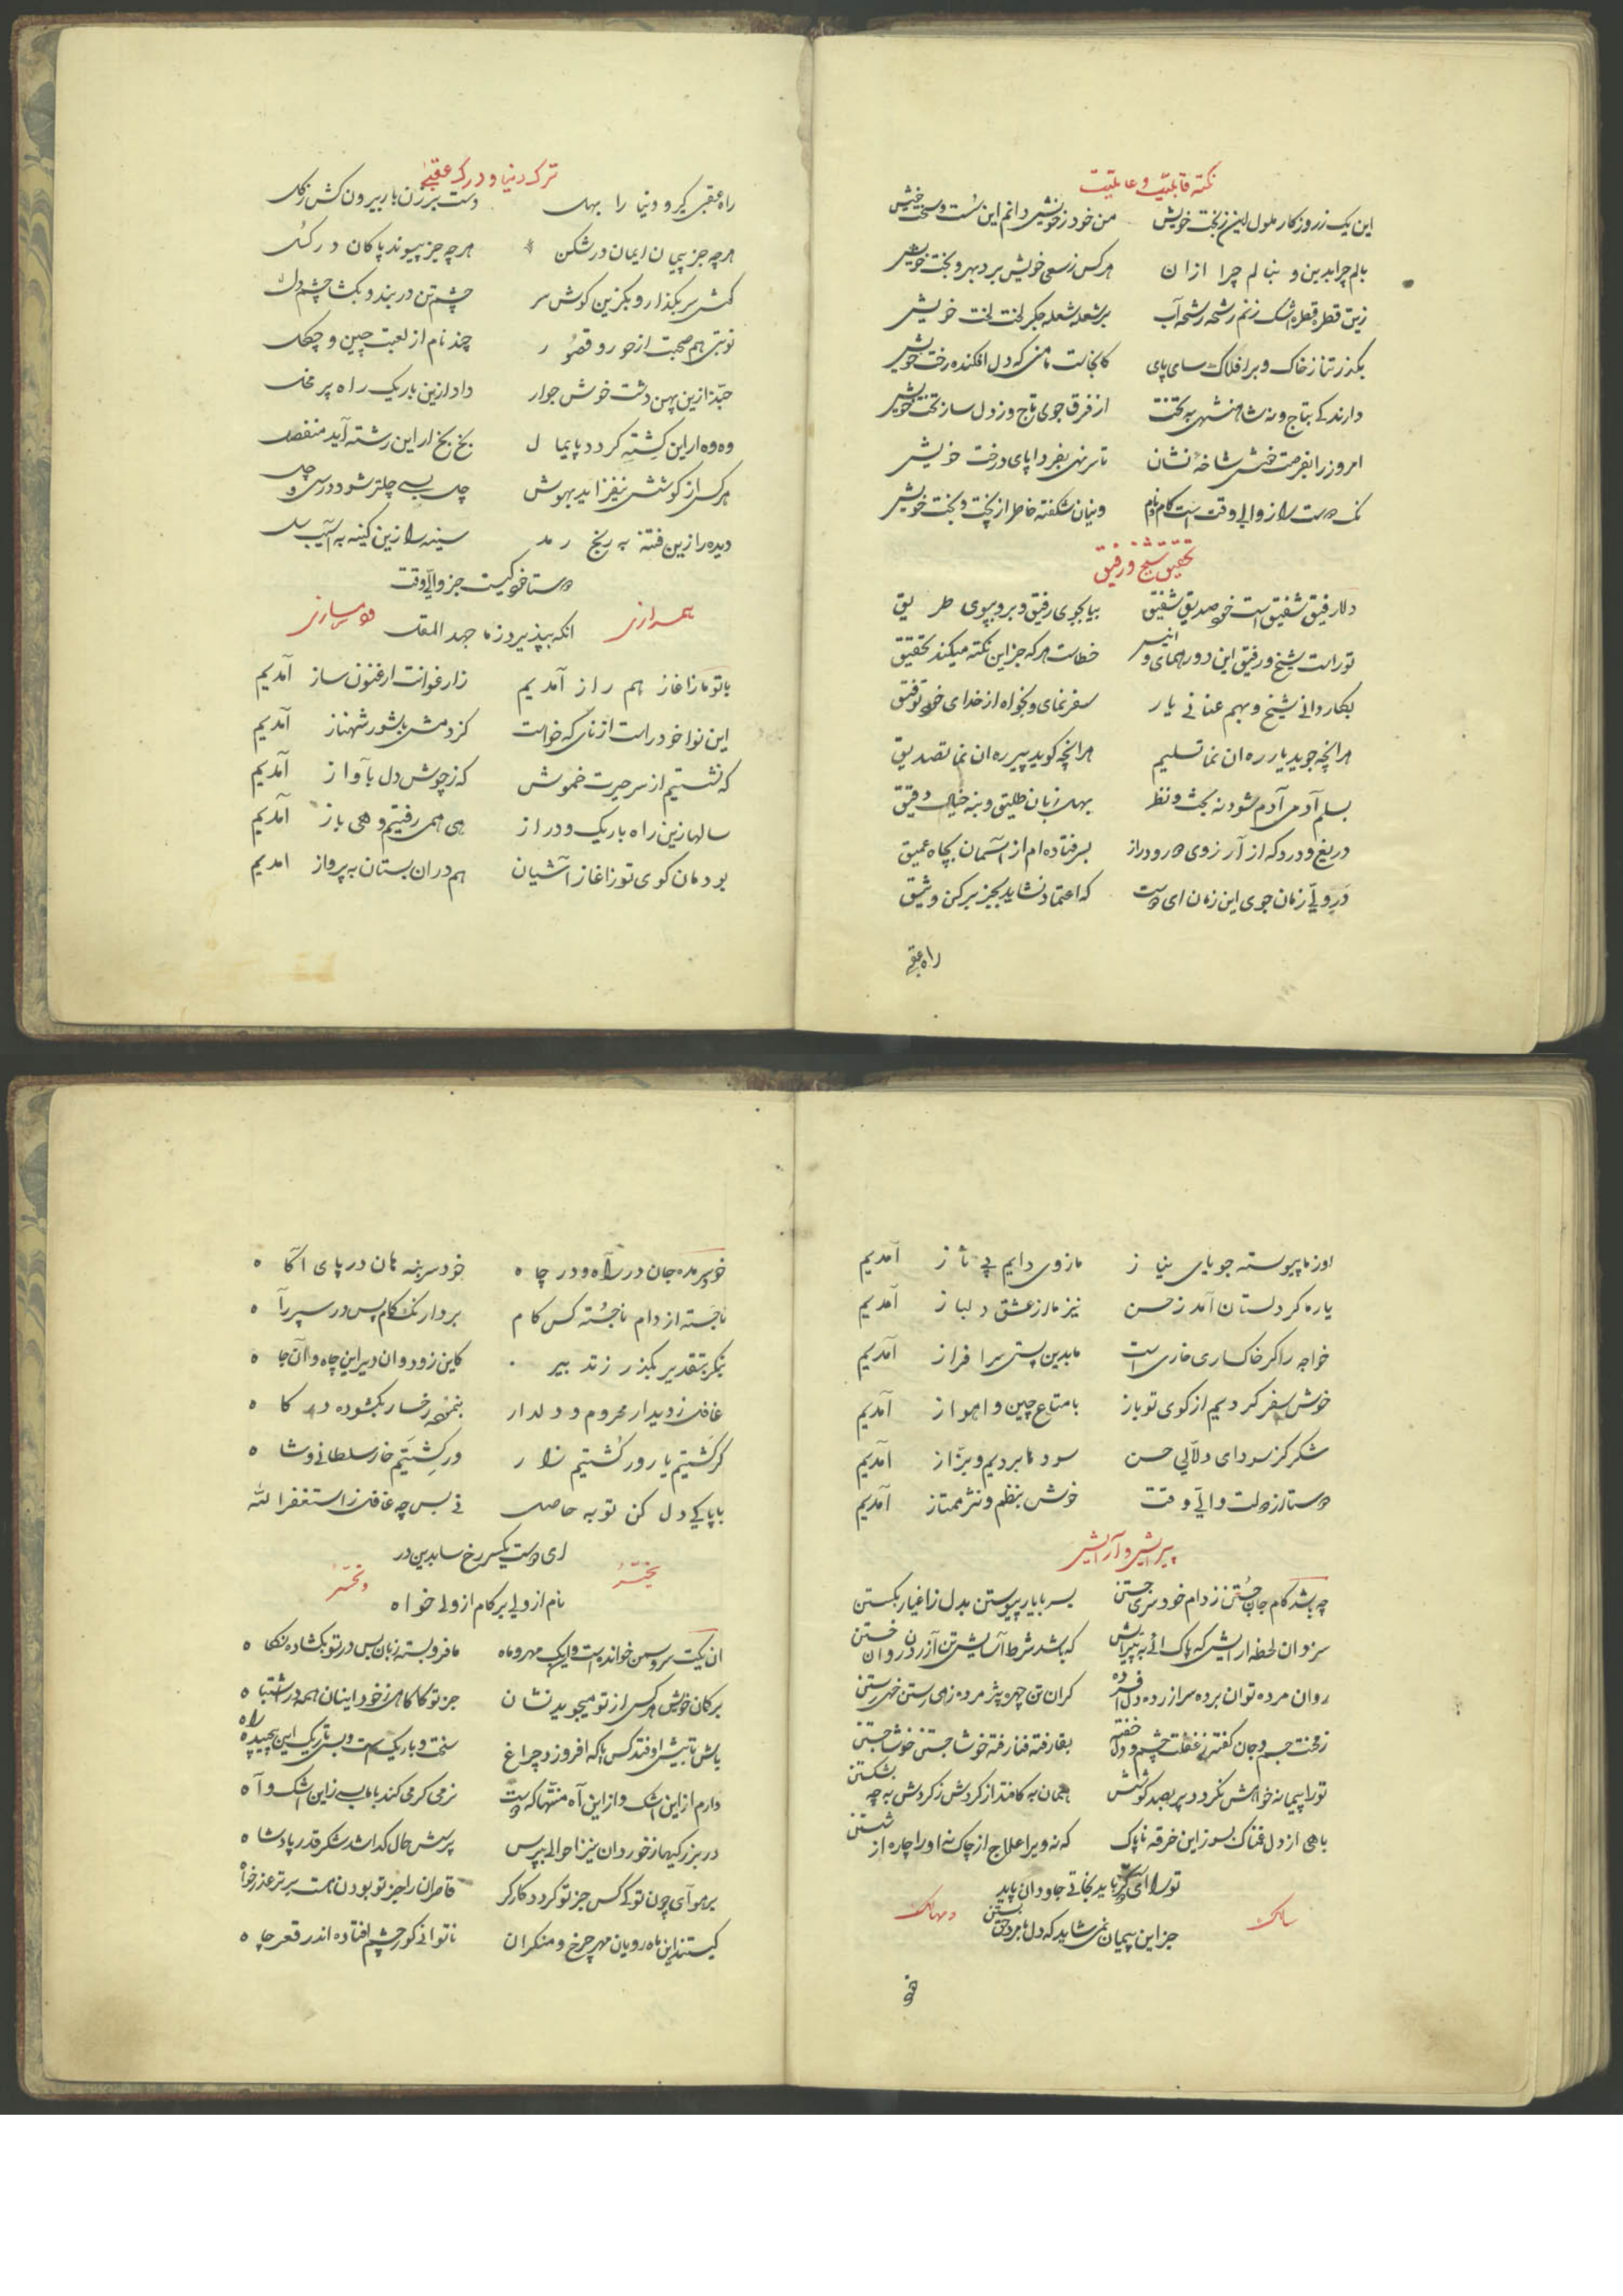 نکته قابلیت و عاملیت
این یک ز روزگار ملول این ز بخت خویش من خود ز خویش دانم این سُست و سخت خویش
بالم چرا بدین و ننالم چرا از ان هر کس ز سعی خویش برد بهر و بخت خویش
زین قطره قطره اشک زنم رشحه رشحه آب بر شعله شعله جگر لخت لخت خویش
بگذر تنا ز خاک و بر افلاک سای پای کانجاست مامنی که دل افکنده رخت خویش
دارند کی بتاج و نه شاهنشهی به تخت از فرق جوی تاج و ز دل ساز تخت خویش
امروز را بفرصت خنثی شاخه نشان تا سر نهی بفردا پای درخت خویش
تحقیق شیخ و رفیق
دلا رفیق شفیق است خود صدیق شفیق بیا بجوی رفیق و برو بپوی طریق
تو راست شیخ و رفیق این دو رهنمای و انیس خطاست هر که جز این نکته میکند تحقیق
بکاردانی شیخ و بهم عنانی یار سفر نمای و بخواه از خدای خود توفیق
هر انچه جوید یار ره ان نما تسلیم هر انچه گوید پیر ره ان نما تصدیق
بسلم آدمی آدم شود نه بحث و نظر بهل زبان طلیق و بنه خیال دقیق
دریغ و درد که از آرزوی دور و دراز بسر فتاده ام از آسمان بچاه عمیق
در ولیّ زمان جوی این زمان ای دوست که اعتماد نشاید بجز برکن وثیق
راه عقبی
ترک دنیا و درک عقبی
راه عقبی گیر و دنیا را بهل دست برزن بار بیرون کش ز گل
هر چه جز پیمان ایمان در شکن هر چه جز پیوند پاکان در گسل
گوش سر بگذار و بگزین گوش سر چشم تن دربند و بگشا چشم دل
نوبتی هم صحبت از حور و قصور چند نام از لعبت چین و چگل
حبّذا زین پهن دشت خوش جوار داد ازین باریک راه پر مخل
وه وه ار این کِشته گردد پایمال بخ بخ ار این رشته آید منفصل
هر کس از کوشش نیفزاید بهوش چل بسی چلتر شود در سی و چل
دیده را زین فتنه به رنج رمد سینه را زین کینه به آسیب سل
دوستا خود کیست جز والیّ وقت
همرازی انکه بپذیرد ز ما جهد المقل دمسازی
با تو ما ز اغاز هم راز آمدیم ز ارغوانت ارغنون ساز آمدیم
این نوا خود راست از نای که خواست کز دمش با شور شهناز آمدیم
که نشستیم از سر حیرت خموش که ز جوش دل بآواز آمدیم
سالها زین راه باریک و دراز هی همی رفتیم و هی باز آمدیم
بودمان کوی تو ز اغاز آشیان هم در ان بستان به پرواز امدیم
اوز ما پیوسته جویای نیاز ما ز وی دایم پی ناز آمدیم
یاره گر دلستان آمد ز حسن نیز ما از عشق دلباز آمدیم
خواجه را گر خاکساری خاری است ما بدین پستی سرافراز آمدیم
خوش سفر کردیم از کوی تو باز با متاع چین و اهواز آمدیم
شکر کز سودای دلاّلی حسن سودها بردیم و بزّاز آمدیم
دوستا از دولت والیّ وقت خوش بنظم و نثر ممتاز آمدیم
پیرایش و آرایش
چه باشد کام جان جُستن ز دام خودسری جستن بسر با یار پیوستن بدل ز اغیار بگستن
توراپیمانه خواهش نگردد پر بصد کوشش
سالک تو را آی گر باید نجاتی جاودان پاید و مهالک
جز این پیمان نمی شاید که دل با مرد حق بستن
خود
خود سر مده جان در راه و در چاه خود سر بنه هان در پای اگاه
ناجَسته از دام ناجُسته کس کام بردار یک گام پس در سپر راه
بنگر بتقدیر بگذر ز تدبیر کاین زود وان دیر این چاه و آن جاه
غافل ز دیدار محروم و دلدار بنموده رخسار بگشوده درگاه
گر کَشتیم یار ور کُشتیم زار ور کِشتیم خار سلطانی و شاه
با پاکی دل کن توبه حاصل نی بس چه غافل ز استغفر الله
ای دوست یکسر رخ سا بدین در
تحیّر نام از ولی بر کام از ولی خواه و تحسّر
ان یکت سرو سمن خوانده است و این یک مهر و ماه ما فرو بسته زبان بس در تو بگشاده نگاه
بر گمان خویش هر کس از تو میجوید نشان جز تو کاگاهی ز خود اینان همه در اشتباه
باش تا بیش اوفتد کس یا که افروزد چراغ سخت و باریک است و بس تاریک این پیچیده راه
دارم از این اشک و از این آه منّتها که دوست نرمی گرمی کند با ما بسی زاین اشک و آه
در بزرگیها ز خوردان نیز احوالی بپرس پرسش حال گدا شد شکر قدر پادشاه
بر هوآی چون تو کی کس جز تو گردد کارگر قاصران را جز تو بودن هست برتر عذر خواه
کیستند این ماه رویان مهر چرخ و منکران ناتوانی کور چشم افتاده اندر قعر چاه